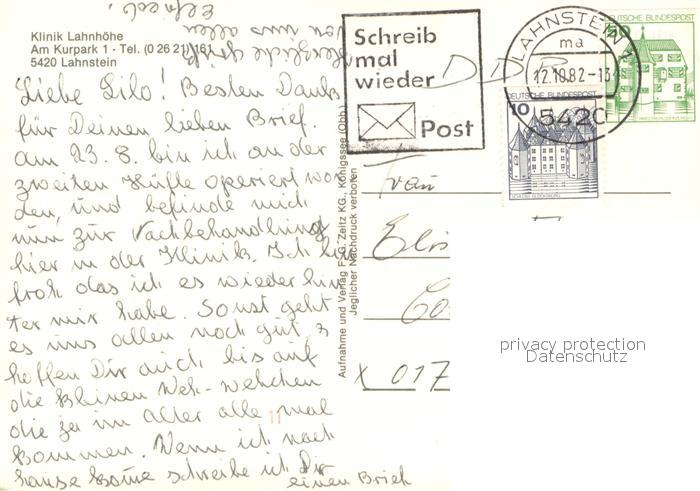 Klinik Lahnhöhe
Am Kurpark 1 - Tel. (0 26 21) 161
5420 Lahnstein
Liebe Lilo! Besten Dank
für Deinen lieben Brief.
am 23. 8. bin ich an der
zweiten Hüfte operiert wor
den, und befinde mich
nun zur Nachbehandlung
hier in der Klinik. Ich bin
froh das ich es wieder hin
ter mir habe. Sonst geht
es uns allen noch gut,
hoffen Dir auch bis auf
die kleinen Weh-wehchen
die ja im alter alle mal
kommen. Wenn ich nach
hause komme schreibe ich Dir
einen Brief
Herzliche Grüße
von uns allen
Elfriede
Aufnahme und Verlag F. G. Zeitz KG., Königssee (Obb.)
Jeglicher Nachdruck verboten
Schreib
mal
wieder
Post
DDR
LAHNSTEIN 1
ma
12.10.82-13
5420
DEUTSCHE BUNDESPOST
50
DEUTSCHE BUNDESPOST
10
SCHLOSS GLÜCKSBURG
Frau
X 017
privacy protection
Datenschutz